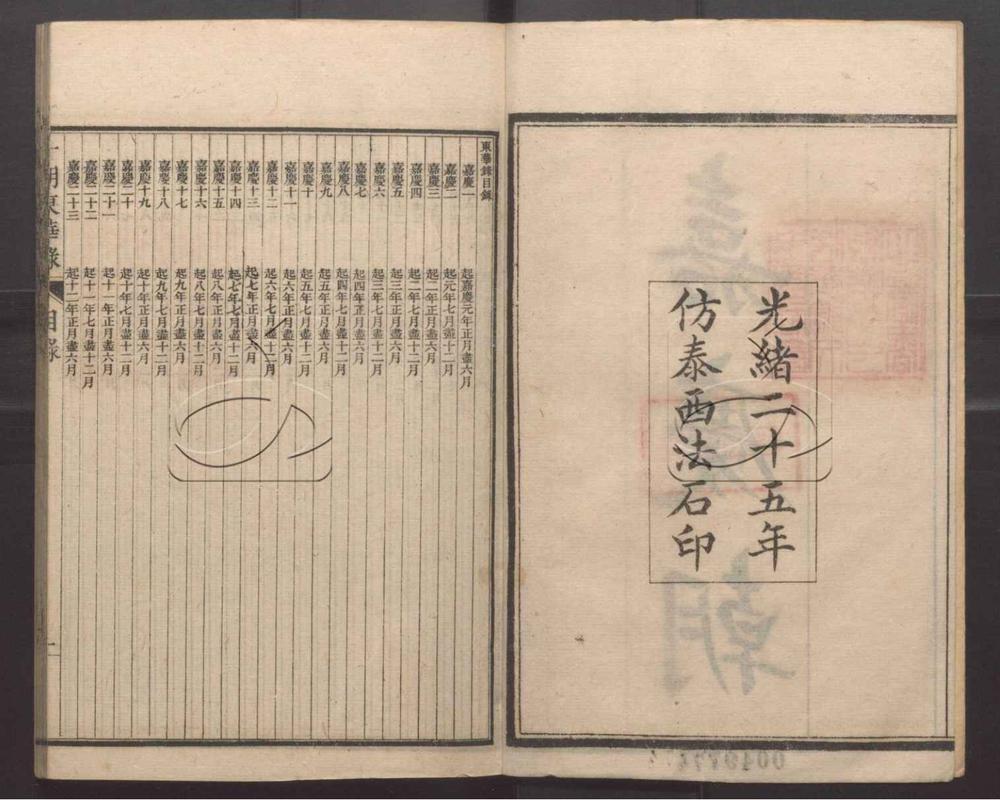 光緒二十五年
仿泰西法石印
東華錄目錄
嘉慶一 起嘉慶元年正月盡六月
嘉慶二 起元年七月盡十二月
嘉慶三 起二年正月盡六月
嘉慶四 起二年七月盡十二月
嘉慶五 起三年正月盡六月
嘉慶六 起三年七月盡十二月
嘉慶七 起四年正月盡六月
嘉慶八 起四年七月盡十二月
嘉慶九 起五年正月盡六月
嘉慶十 起五年七月盡十二月
嘉慶十一 起六年正月盡六月
嘉慶十二 起六年七月盡十二月
嘉慶十三 起七年正月盡六月
嘉慶十四 起七年七月盡十二月
嘉慶十五 起八年正月盡六月
嘉慶十六 起八年七月盡十二月
嘉慶十七 起九年正月盡六月
嘉慶十八 起九年七月盡十二月
嘉慶十九 起十年正月盡六月
嘉慶二十 起十年七月盡十二月
嘉慶二十一 起十一年正月盡六月
嘉慶二十二 起十一年七月盡十二月
嘉慶二十三 起十二年正月盡六月
一朝東華錄 目錄 一